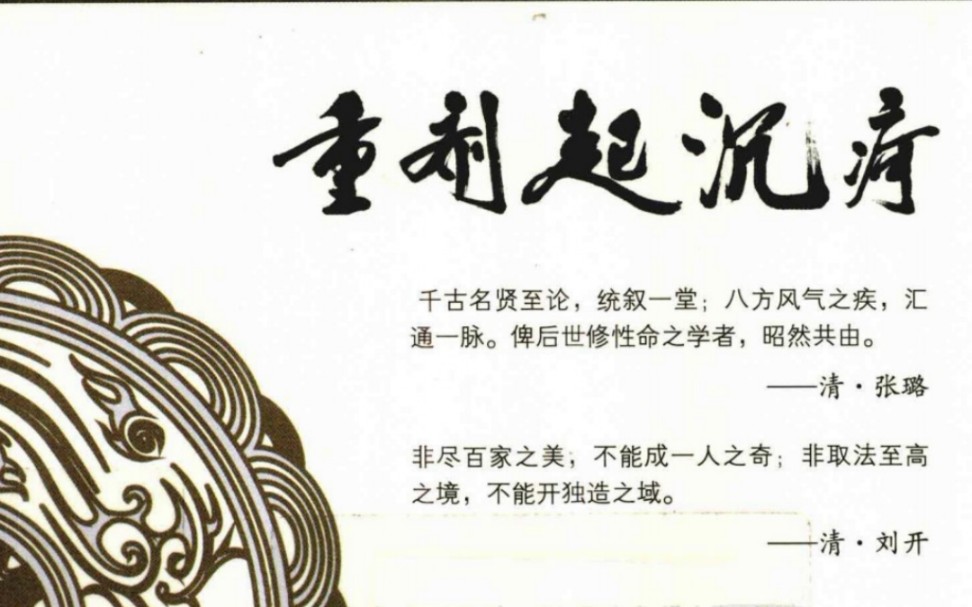 重剂起沉疴
千古名贤至论，统叙一堂；八方风气之疾，汇
通一脉。俾后世修性命之学者，昭然共由。
——清·张璐
非尽百家之美，不能成一人之奇；非取法至高
之境，不能开独造之域。
——清·刘开